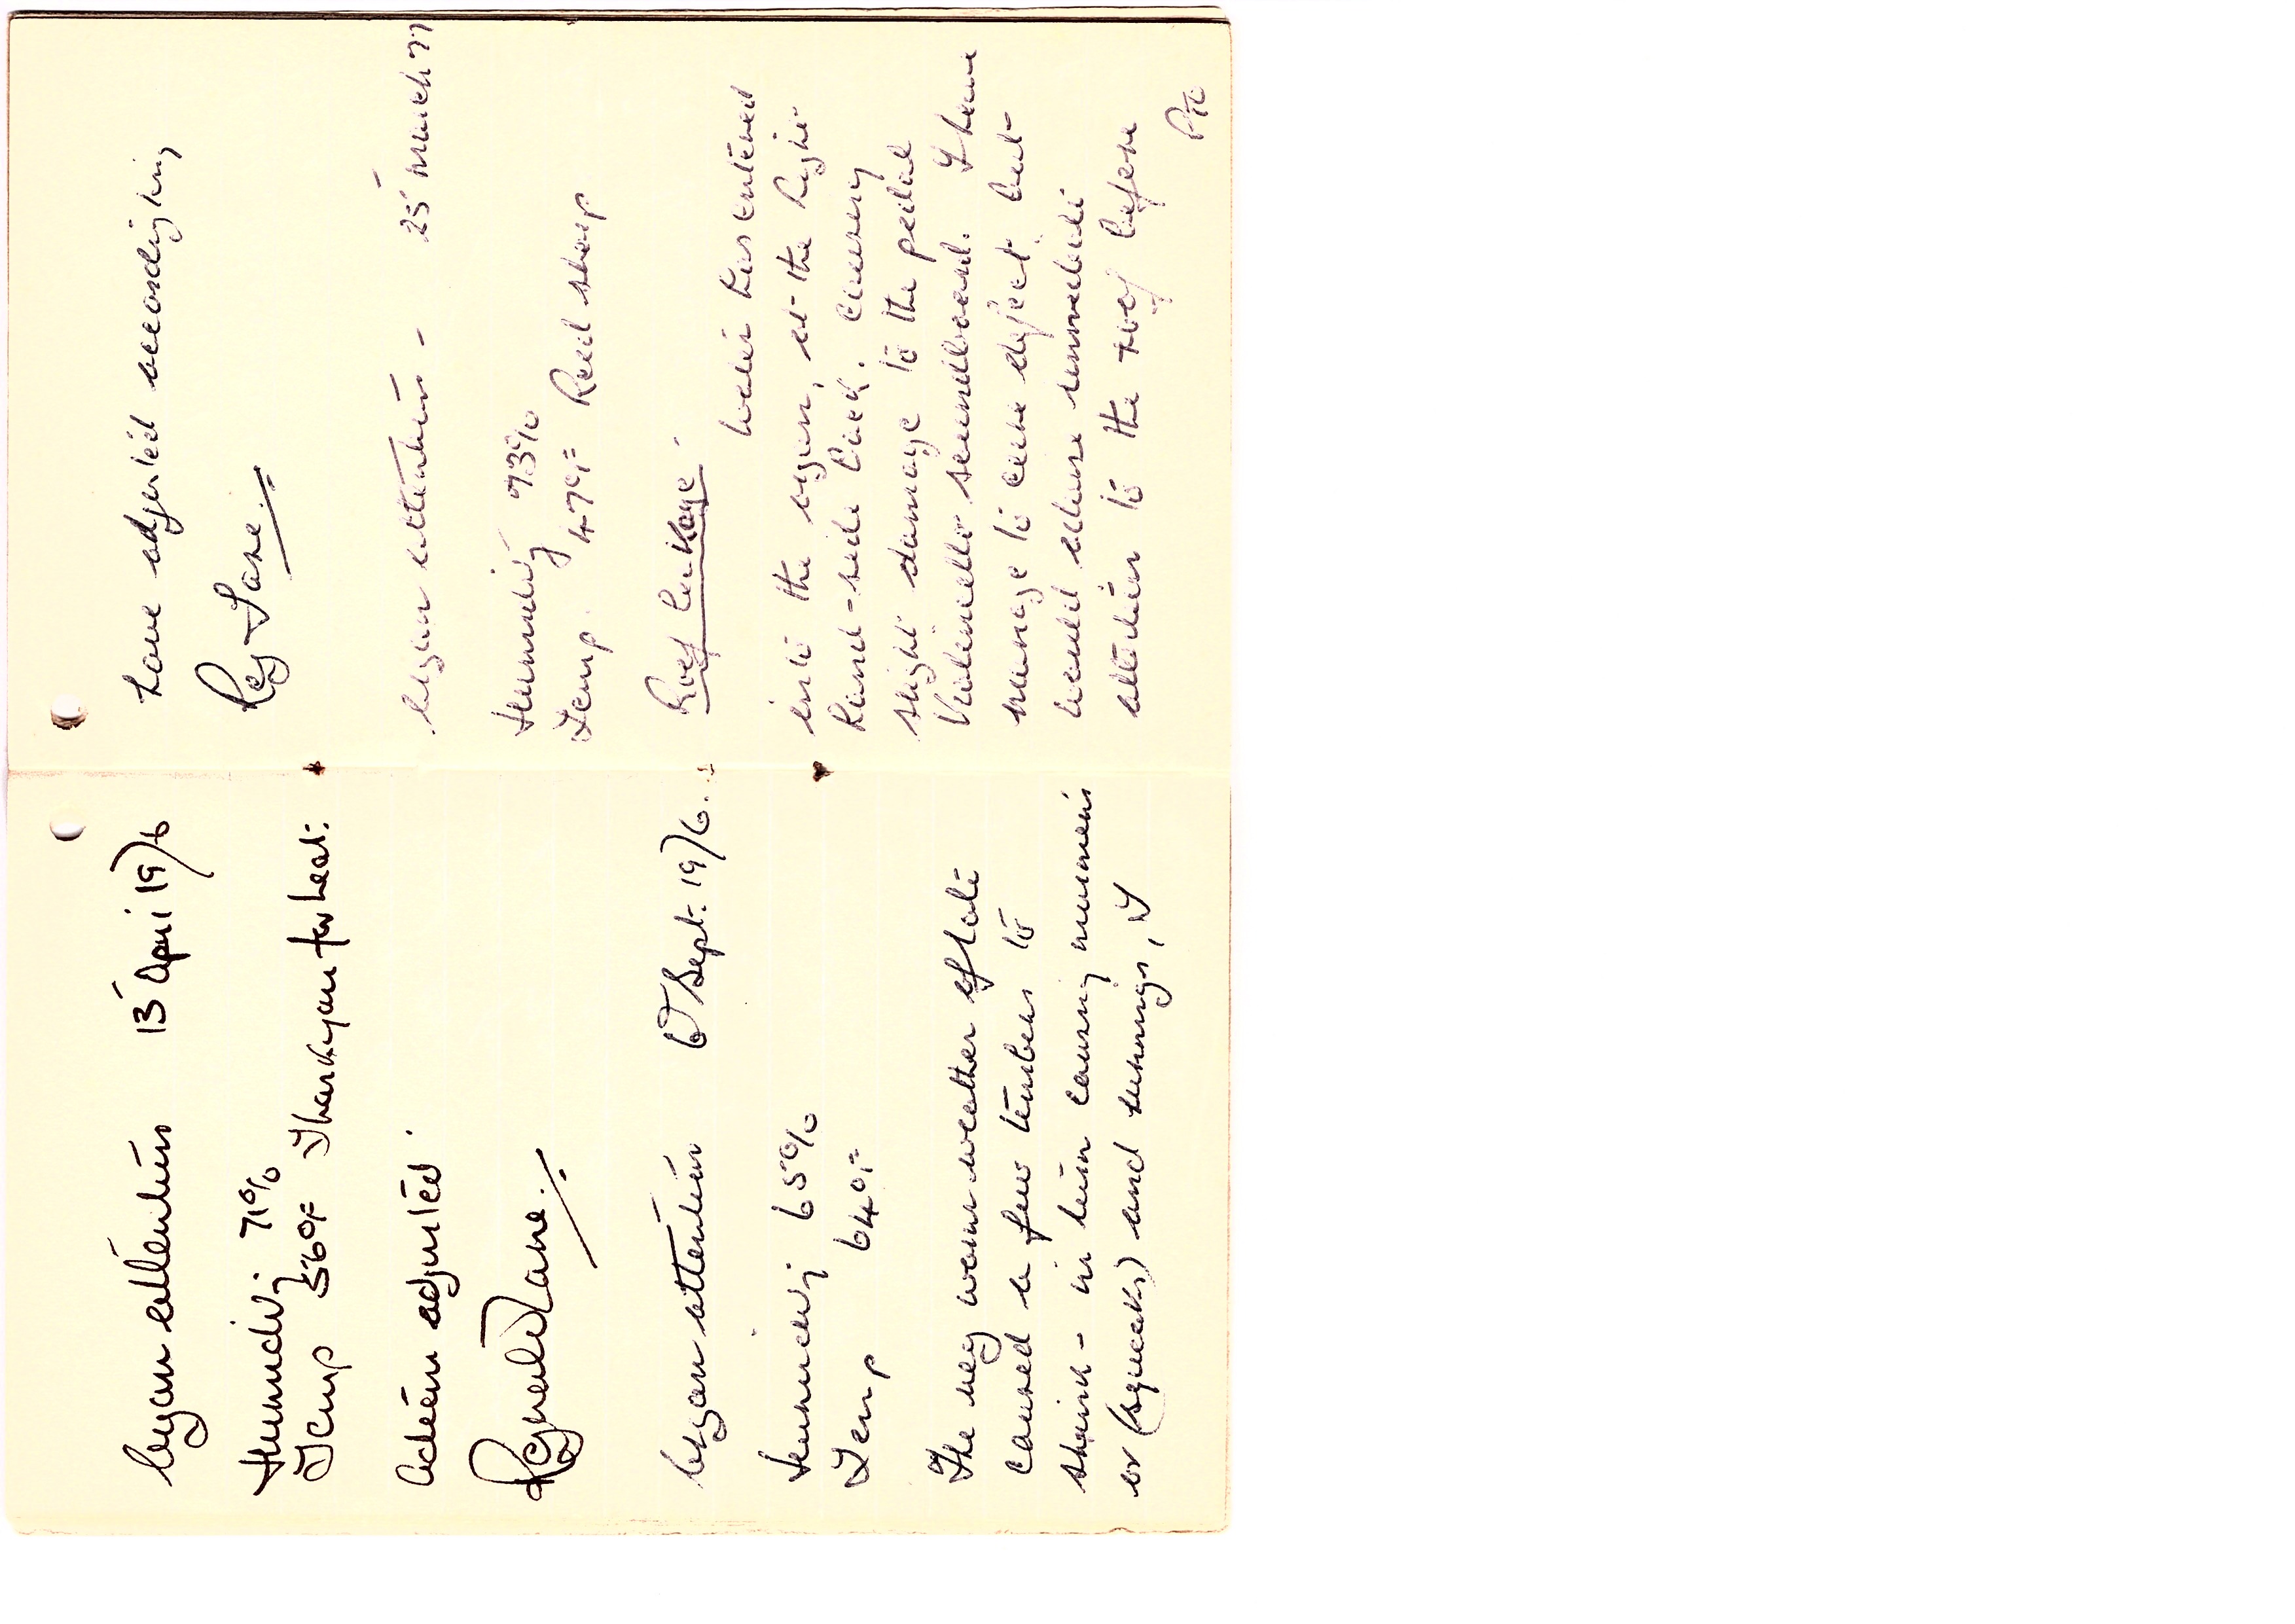 Organ attention 13 April 1976
Humidity 71%
Temp 56°F Thankyou for heat.
Action adjusted
Reginald Lane.
Organ attention 6 Sept. 1976.
Humidity 65%
Temp 64°F
The very warm weather of late
caused a few timbers to
shrink - in turn causing murmurs
or (squeaks) and runnings, I
have adjusted accordingly
Reg Lane.
Organ attention - 25 March 77
Humidity 93%
Temp. 47°F Reed sharp
Roof leakage -
Water has entered
into the organ, at the right
hand-side back. causing
slight damage to the pedal
Violoncello soundboard. I have
manage to cure defect but
would advise immediate
attention to the roof before